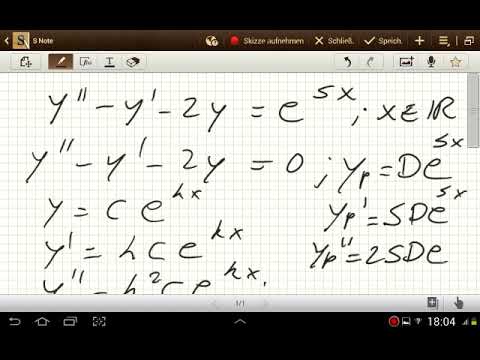 S Note
Skizze aufnehmen
Schließ.
Speich.
y'' - y' - 2y = e^{5x} ; x ∈ ℝ
y'' - y' - 2y = 0 ; y_p = De^{5x}
y = c e^{kx} y_p' = 5De^{5x}
y' = kce^{kx} y_p'' = 25De
y'' = k²ce^{kx}.
1/1
18:04